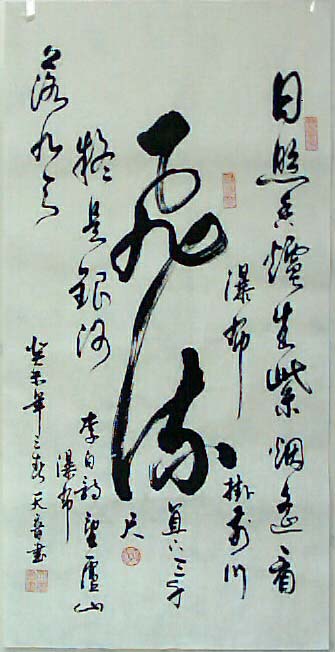 日照香爐生紫烟遥看
瀑布掛前川
飛流
直下三千
尺
疑是銀河
落九天
李白詩望廬山
瀑布
癸未年三春天音書